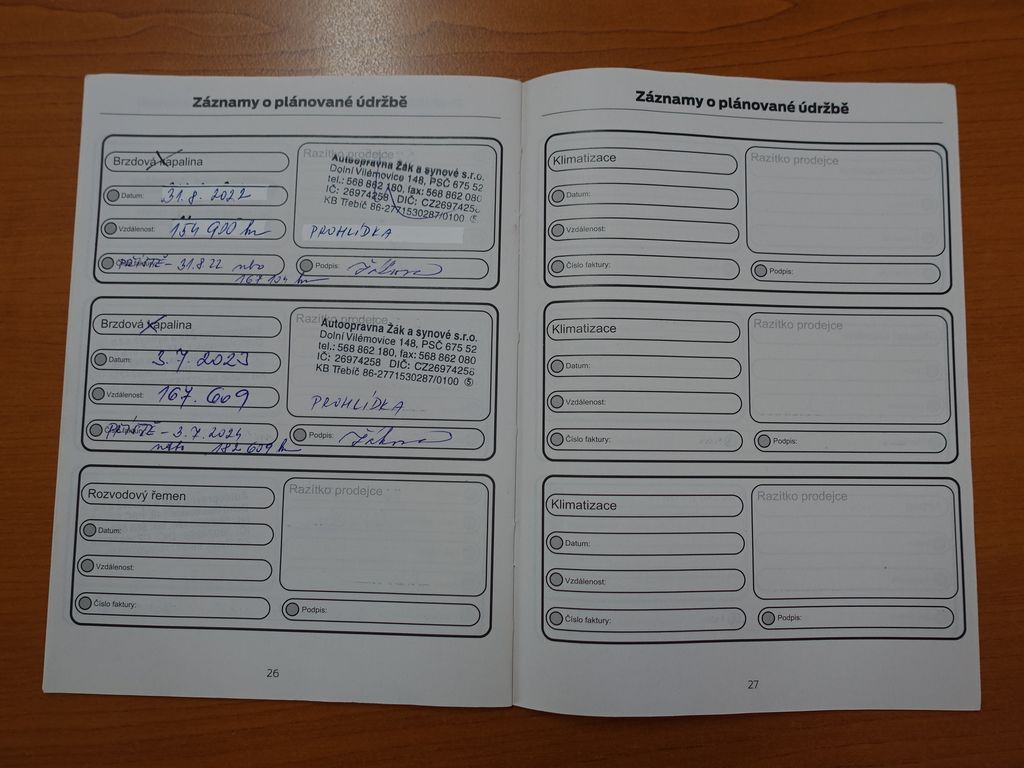 Záznamy o plánované údržbě
Brzdová kapalina
Datum: 31.8. 2022
Vzdálenost: 154 900 km
PŘÍŠTĚ - 31.8.22 nebo
167 104 km
Razítko prodejce
Autoopravna Žák a synové s.r.o.
Dolní Vilémovice 148, PSČ 675 52
tel.: 568 862 180, fax: 568 862 080
IČ: 26974258 DIČ: CZ26974258
KB Třebíč 86-2771530287/0100 ⑤
PROHLÍDKA
Podpis:
Brzdová kapalina
Datum: 3.7.2023
Vzdálenost: 167.609
PŘÍŠTĚ - 3.7.2024
nebo 182 609 km
Razítko prodejce
Autoopravna Žák a synové s.r.o.
Dolní Vilémovice 148, PSČ 675 52
tel.: 568 862 180, fax: 568 862 080
IČ: 26974258 DIČ: CZ26974258
KB Třebíč 86-2771530287/0100 ⑤
PROHLÍDKA
Podpis:
Rozvodový řemen
Datum:
Vzdálenost:
Číslo faktury:
Razítko prodejce
Podpis:
26
Záznamy o plánované údržbě
Klimatizace
Datum:
Vzdálenost:
Číslo faktury:
Razítko prodejce
Podpis:
Klimatizace
Datum:
Vzdálenost:
Číslo faktury:
Razítko prodejce
Podpis:
Klimatizace
Datum:
Vzdálenost:
Číslo faktury:
Razítko prodejce
Podpis:
27